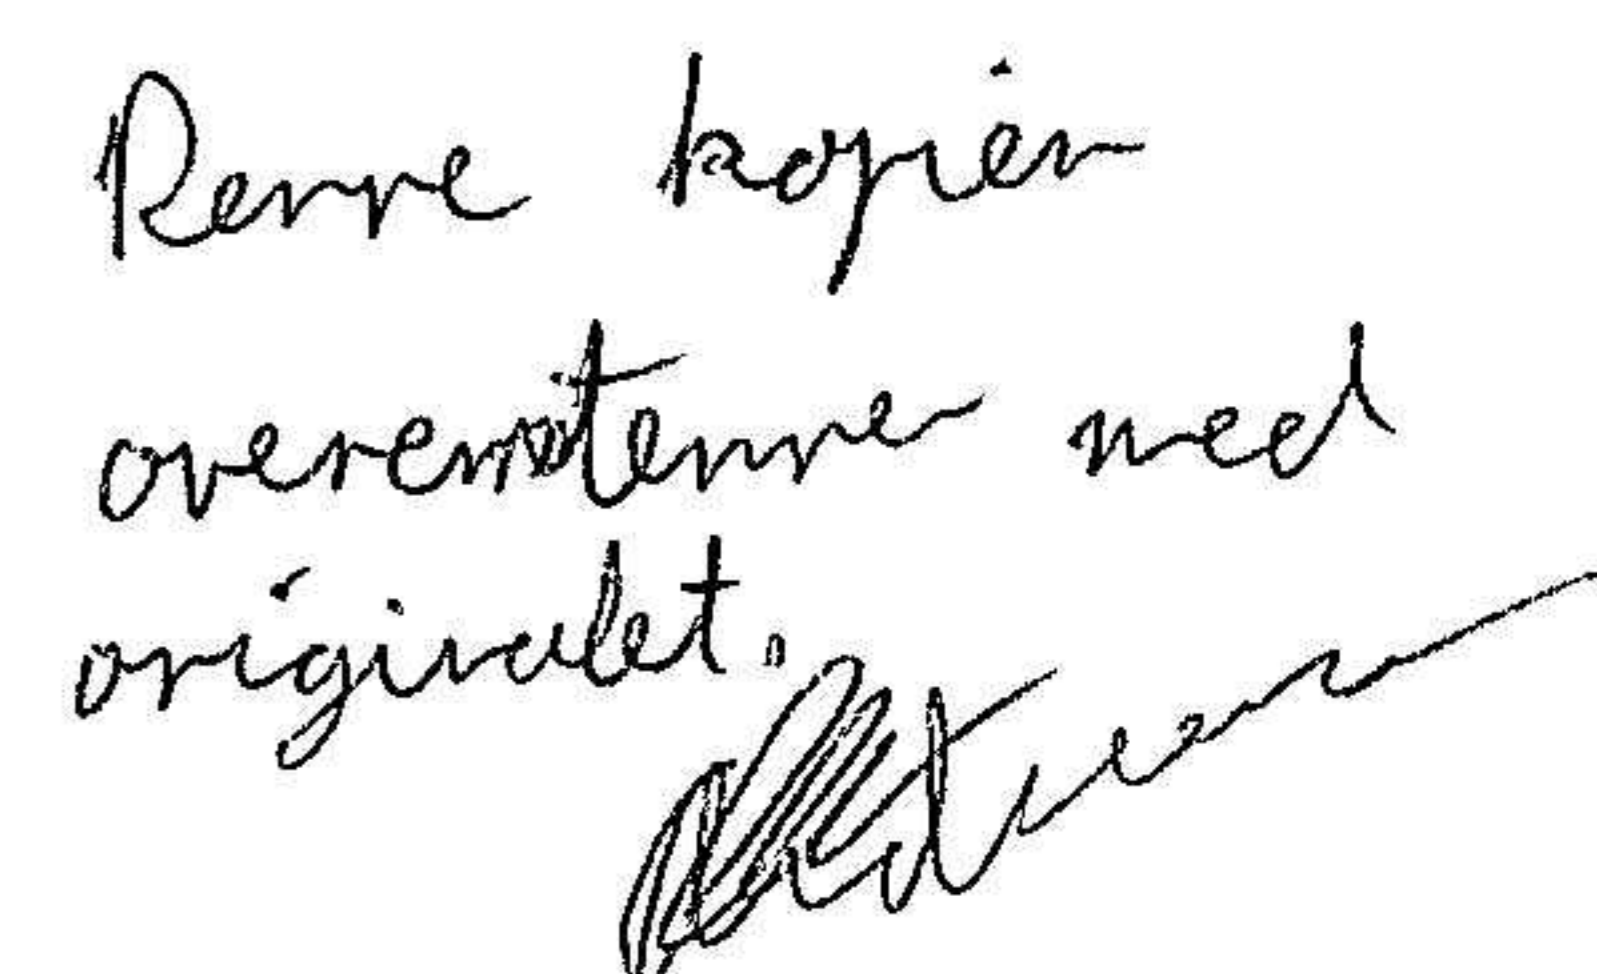 Denne kopien
overenstenner med
originalet.